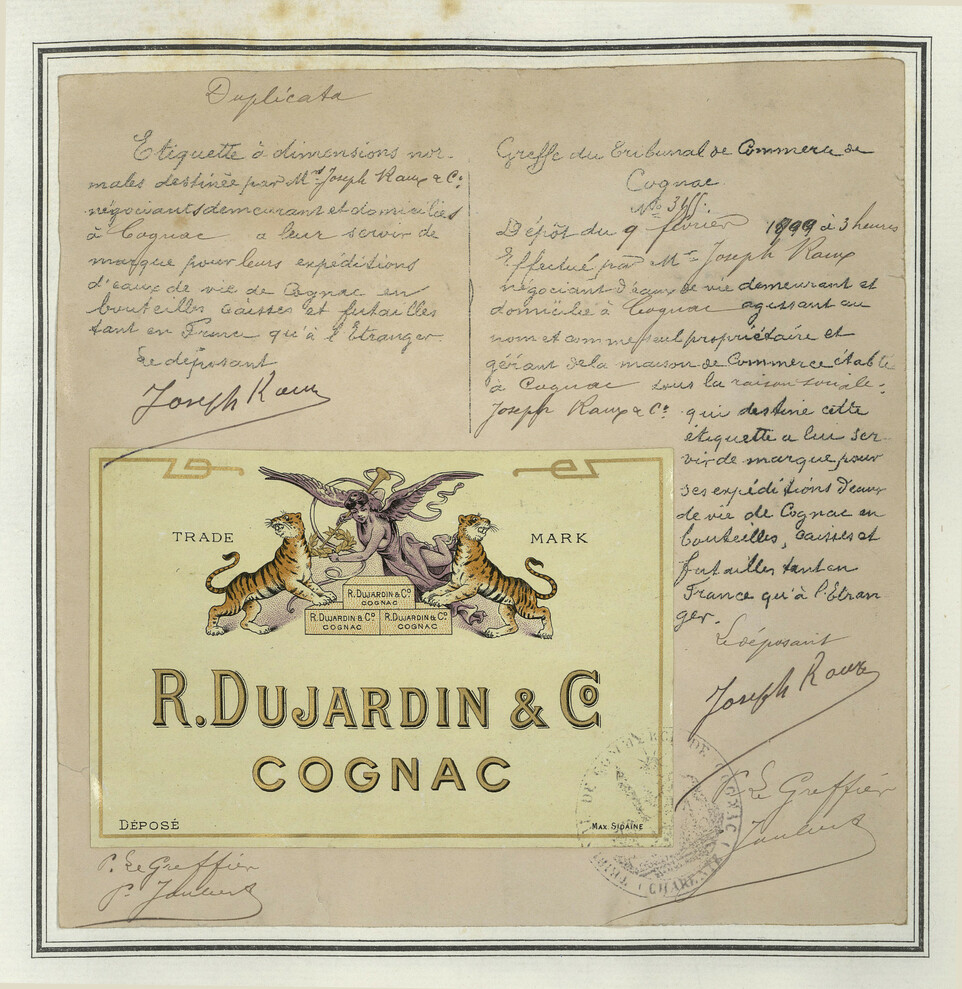 Duplicata
Etiquette à dimensions nor-
males destinée par Mrs Joseph Raux & Cº
négociants demeurant et domiciliés
à Cognac a leur servir de
marque pour leurs expéditions
d'eaux de vie de Cognac en
bouteilles caisses et futailles
tant en France qu'à l'Etranger
Le déposant
Joseph Raux
Greffe du Tribunal de Commerce de
Cognac
Nº
Dépôt du 9 février 1899 à 3 heures
Effectué par Mr Joseph Raux
négociant d'eaux de vie demeurant et
domicilié à Cognac agissant au
nom et comme seul propriétaire et
gérant de la maison de Commerce établie
à Cognac sous la raison sociale:
Joseph Raux & Cº qui destine cette
étiquette a lui ser-
vir de marque pour
ses expéditions d'eaux
de vie de Cognac en
bouteilles, caisses et
futailles tant en
France qu'à l'Etran-
ger.
Le déposant
Joseph Raux
P. Le Greffier
TRADE MARK
R. DUJARDIN & Cº
COGNAC
R. DUJARDIN & Cº R. DUJARDIN & Cº
COGNAC COGNAC
R. DUJARDIN & Cº
COGNAC
DÉPOSÉ
MAX SIDAINE
TRIBUNAL DE COMMERCE DE COGNAC
(CHARENTE)
P. Le Greffier